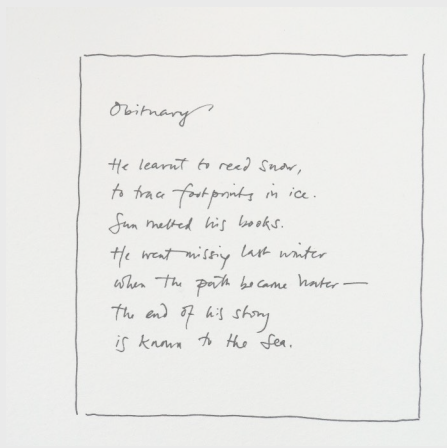 Obituary
He learnt to read snow,
to trace footprints in ice.
Sun melted his books.
He went missing last winter
when the path became water —
the end of his story
is known to the sea.